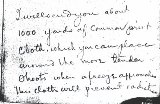 I will send you about
1000 yards of Common print
Cloth which you can place
around the more tender
Shoots when a freeze approaches
This cloth will prevent radiat